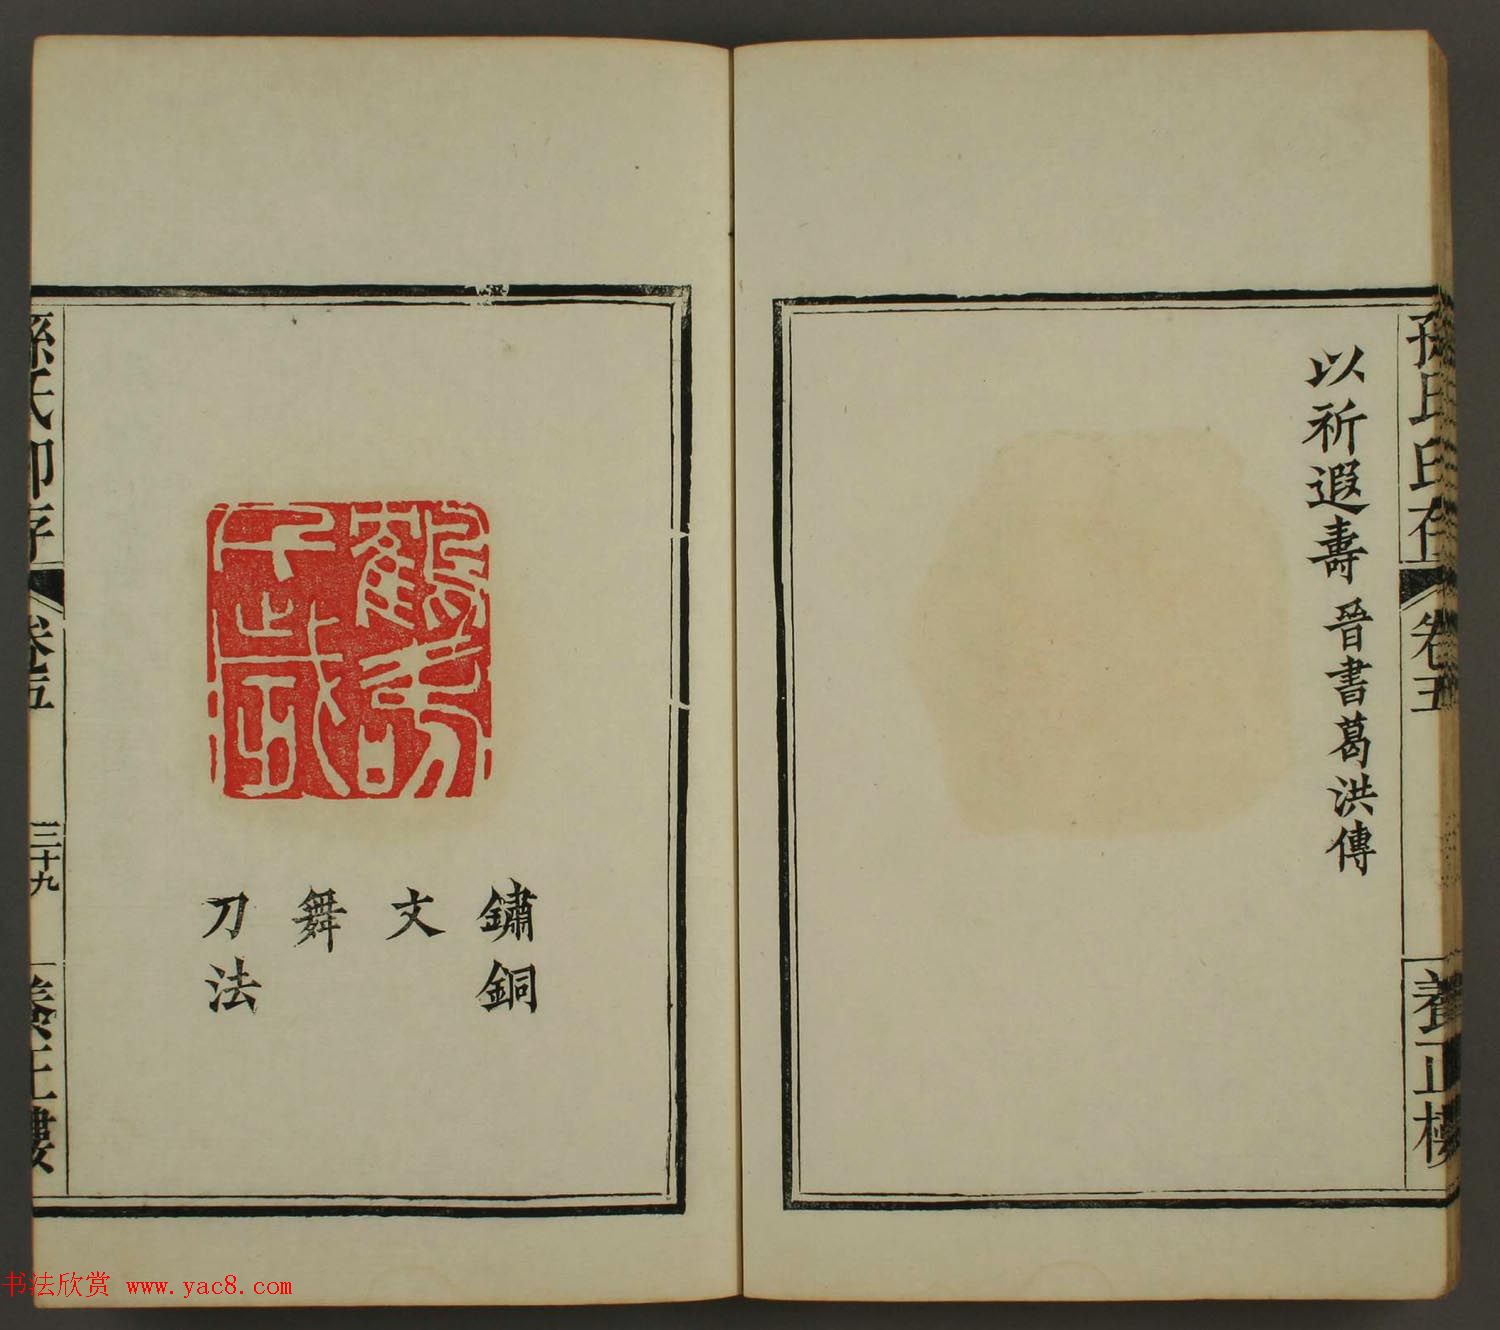 孫氏印存
卷五
養正樓
以祈遐壽 晉書葛洪傳
鶴壽
千歲
鏽銅
文
舞
刀法
孫氏印存
卷五
三十九
養正樓
书法欣赏 www.yac8.com